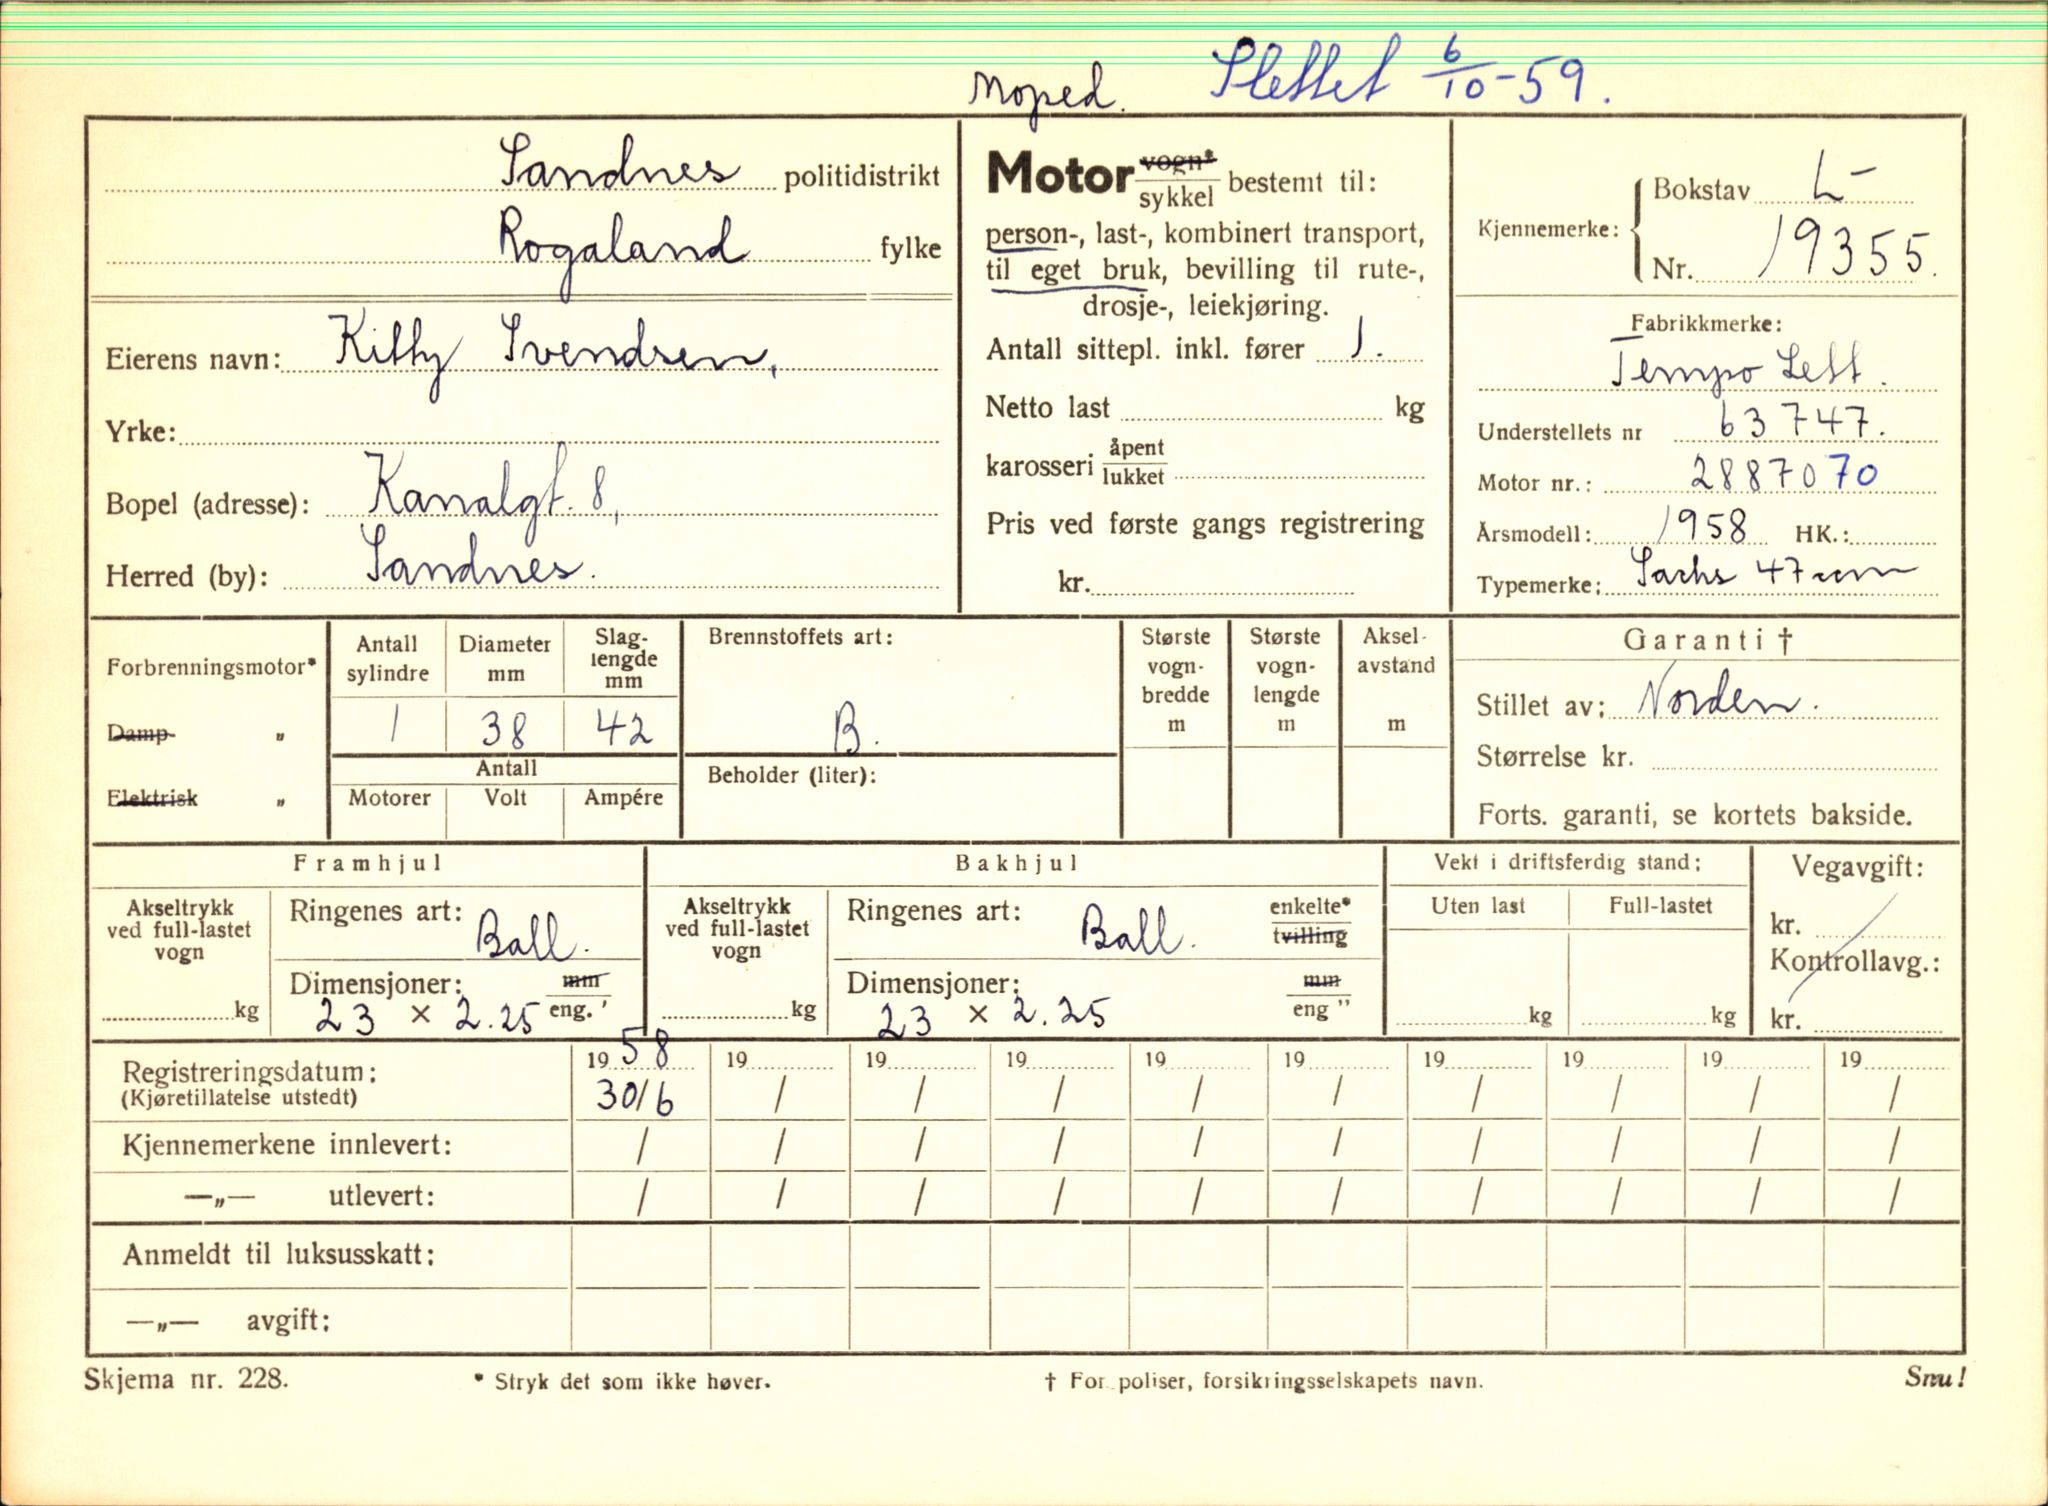 Moped. Slettet 6/10-59.
Sandnes politidistrikt
Rogaland fylke
Eierens navn: Kitty Svendsen,
Yrke:
Bopel (adresse): Kanalgt. 8,
Herred (by): Sandnes.
Motor vogn*/sykkel bestemt til:
person-, last-, kombinert transport,
til eget bruk, bevilling til rute-,
drosje-, leiekjøring.
Antall sittepl. inkl. fører 1.
Netto last kg
karosseri åpent/lukket
Pris ved første gangs registrering
kr.
Kjennemerke: Bokstav L-
Nr. 19355.
Fabrikkmerke:
Tempo Lett.
Understellets nr 63747.
Motor nr.: 2887070
Årsmodell: 1958 HK.:
Typemerke: Sachs 47 ccm
Forbrenningsmotor*
Damp- „
Elektrisk „
Antall sylindre
1
Diameter mm
38
Slag-lengde mm
42
Antall
Motorer Volt Ampére
Brennstoffets art:
B.
Beholder (liter):
Største vogn-bredde m
Største vogn-lengde m
Aksel-avstand m
Garanti †
Stillet av: Norden.
Størrelse kr.
Forts. garanti, se kortets bakside.
Framhjul
Akseltrykk ved full-lastet vogn
kg
Ringenes art: Ball.
Dimensjoner: mm/eng.'
23 × 2.25
Bakhjul
Akseltrykk ved full-lastet vogn
kg
Ringenes art: Ball. enkelte*/tvilling
Dimensjoner: mm/eng "
23 × 2.25
Vekt i driftsferdig stand:
Uten last Full-lastet
kg kg
Vegavgift:
kr.
Kontrollavg.:
kr.
Registreringsdatum: 1958 19 19 19 19 19 19 19 19 19
(Kjøretillatelse utstedt) 30/6 / / / / / / / / /
Kjennemerkene innlevert: / / / / / / / / / /
—„— utlevert: / / / / / / / / / /
Anmeldt til luksusskatt:
—„— avgift:
Skjema nr. 228. * Stryk det som ikke høver. † For poliser, forsikringsselskapets navn. Snu!